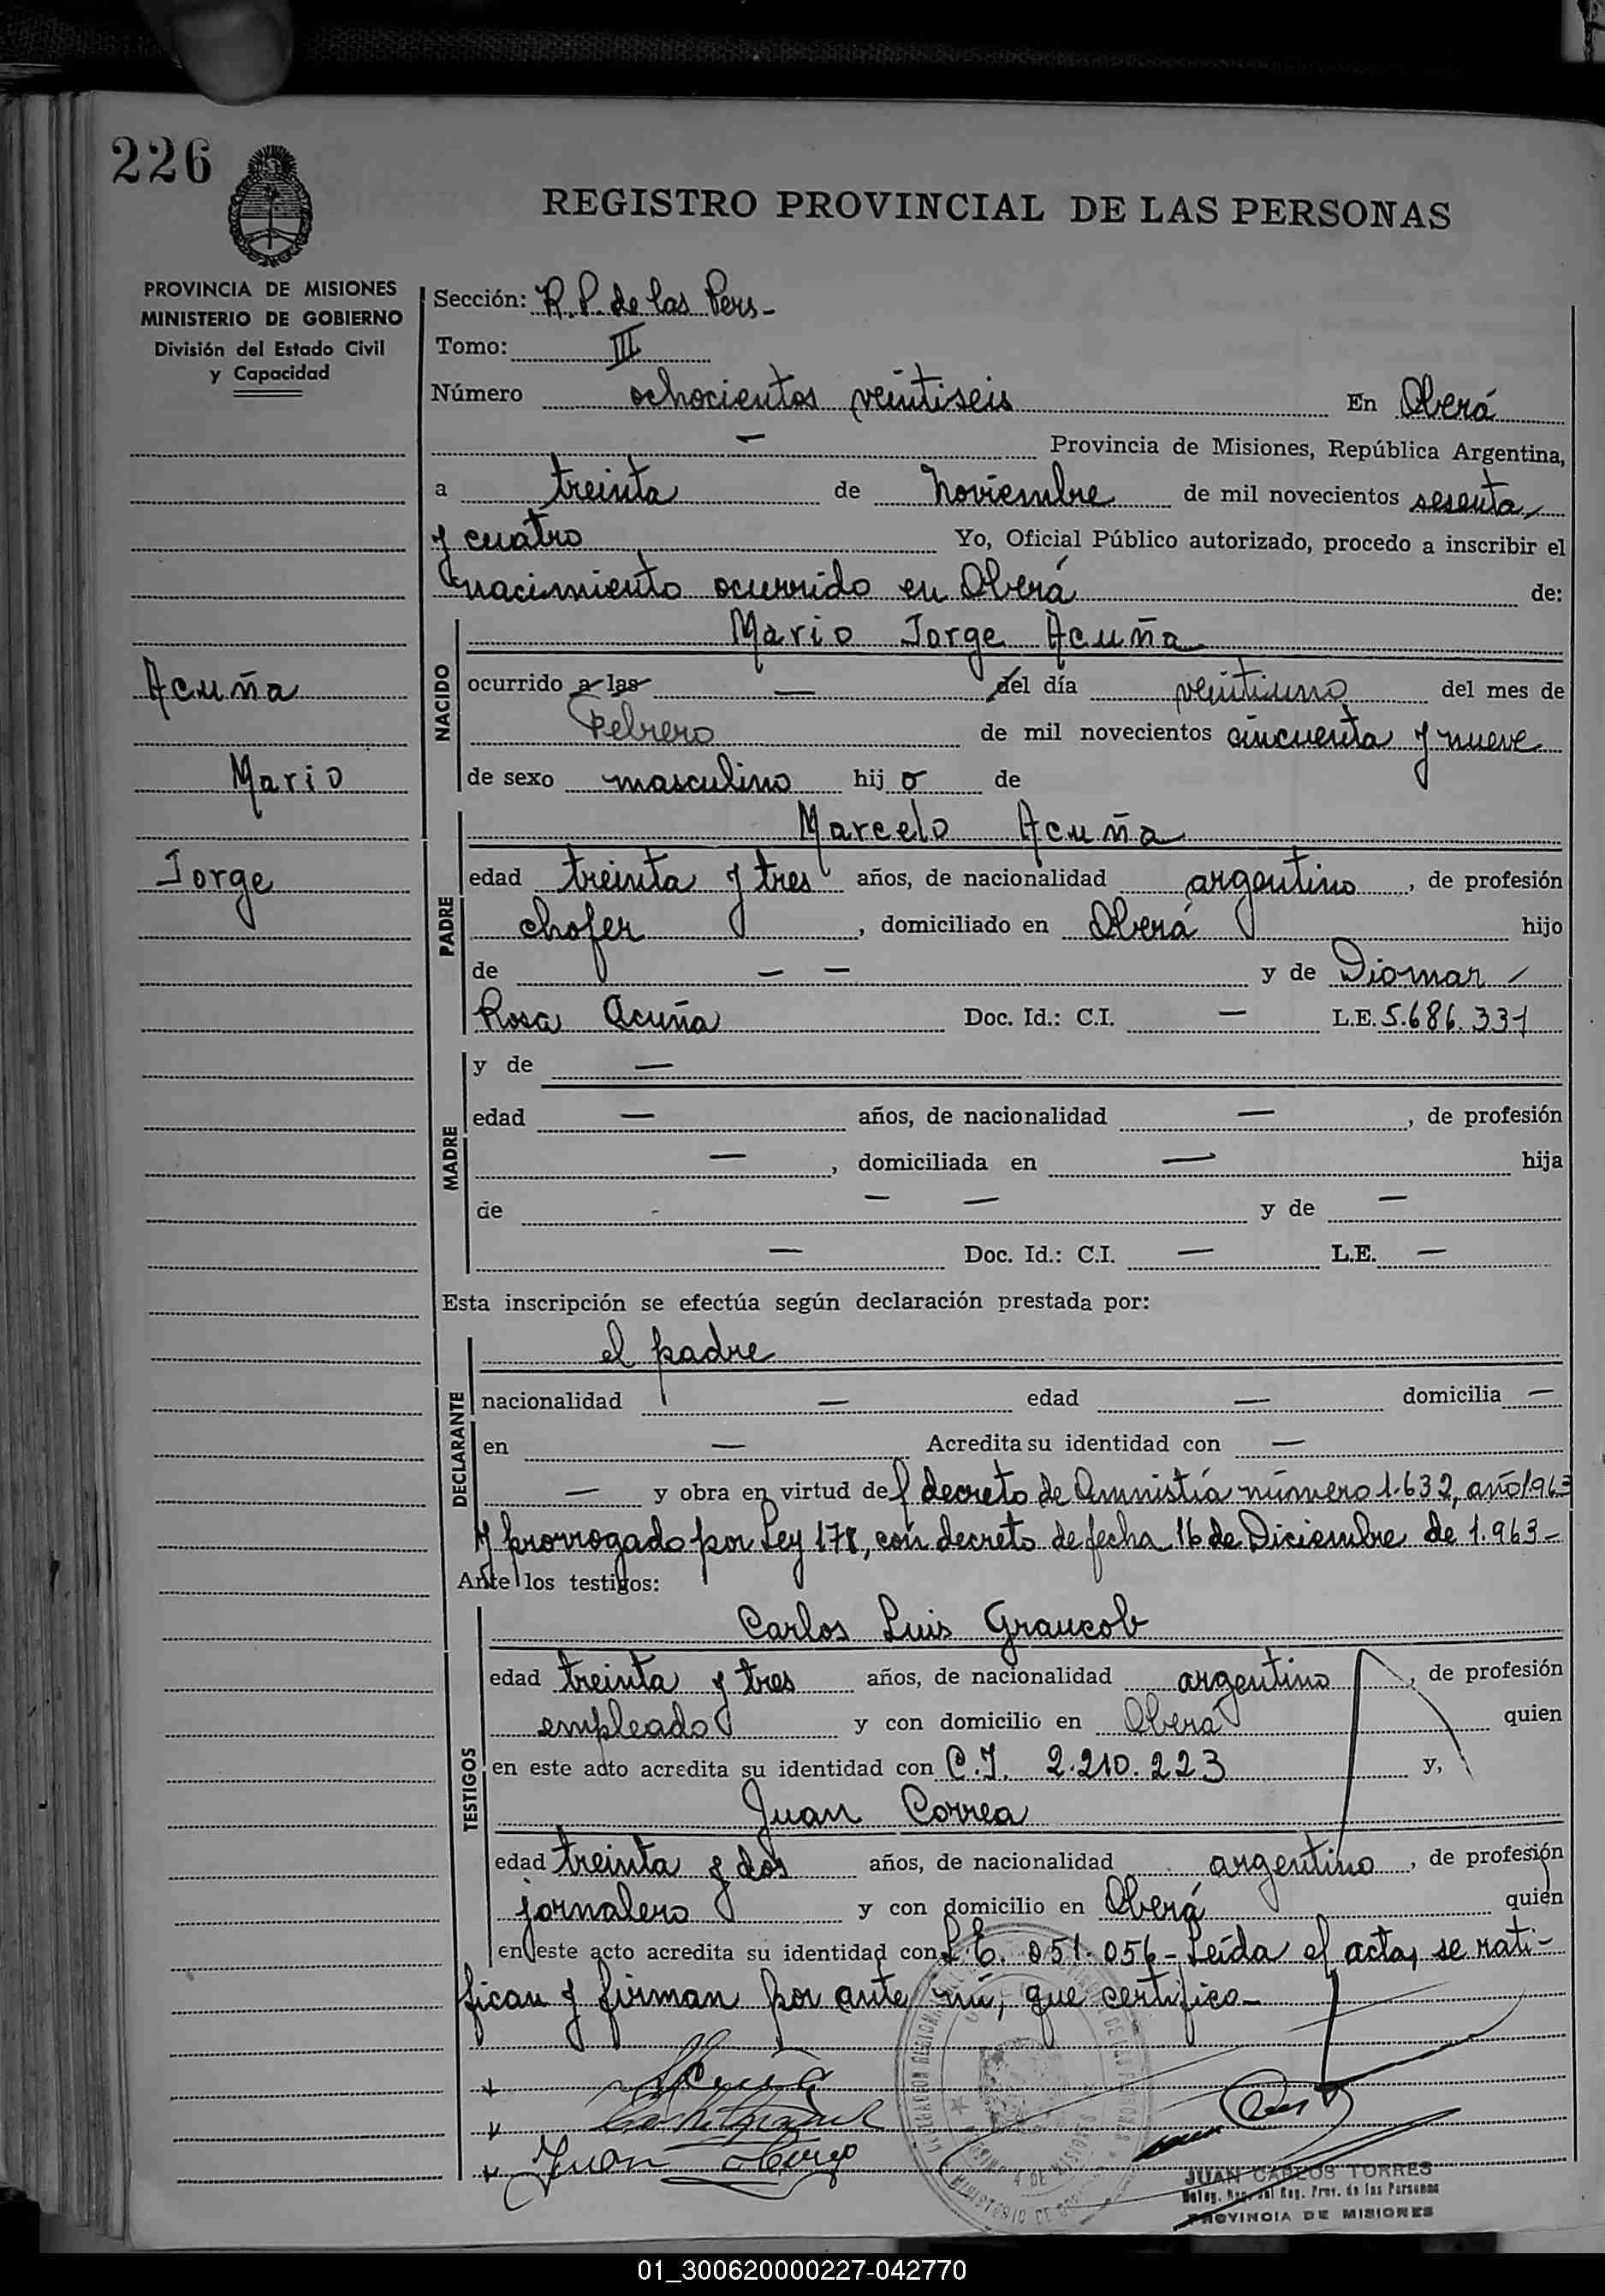 226
REGISTRO PROVINCIAL DE LAS PERSONAS
PROVINCIA DE MISIONES
MINISTERIO DE GOBIERNO
División del Estado Civil
y Capacidad
Sección: R.P. de las Pers-
Tomo: III
Número ochocientos veintiseis En Oberá
— Provincia de Misiones, República Argentina,
a treinta de Noviembre de mil novecientos sesenta
y cuatro Yo, Oficial Público autorizado, procedo a inscribir el
nacimiento ocurrido en Oberá de:
Mario Jorge Acuña
Acuña
Mario
Jorge
NACIDO
ocurrido a las — del día veintiuno del mes de
Febrero de mil novecientos cincuenta y nueve
de sexo masculino hij o de
Marcelo Acuña
PADRE
edad treinta y tres años, de nacionalidad argentino, de profesión
chofer, domiciliado en Oberá hijo
de — — y de Diomar
Rosa Acuña Doc. Id.: C.I. — L.E. 5.686.331
MADRE
y de —
edad — años, de nacionalidad —, de profesión
—, domiciliada en — hija
de — — y de —
— Doc. Id.: C.I. — L.E. —
Esta inscripción se efectúa según declaración prestada por:
DECLARANTE
el padre
nacionalidad — edad — domicilia —
en — Acredita su identidad con —
— y obra en virtud del decreto de Amnistía número 1.632, año 1963
y prorrogado por Ley 178, con decreto de fecha 16 de Diciembre de 1.963-
Ante los testigos:
TESTIGOS
Carlos Luis Graucob
edad treinta y tres años, de nacionalidad argentino, de profesión
empleado y con domicilio en Oberá quien
en este acto acredita su identidad con C.I. 2.210.223 y,
Juan Correa
edad treinta y dos años, de nacionalidad argentino, de profesión
jornalero y con domicilio en Oberá quien
en este acto acredita su identidad con L.E. 051.056- Leída el acta, se rati-
fican y firman por ante mí, que certifico-
Acuña
Juan
JUAN CARLOS TORRES
Deleg. Reg. del Reg. Prov. de las Personas
PROVINCIA DE MISIONES
01_300620000227-042770